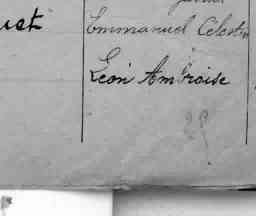 Emmanuel Celestin
Léon Ambroise
29